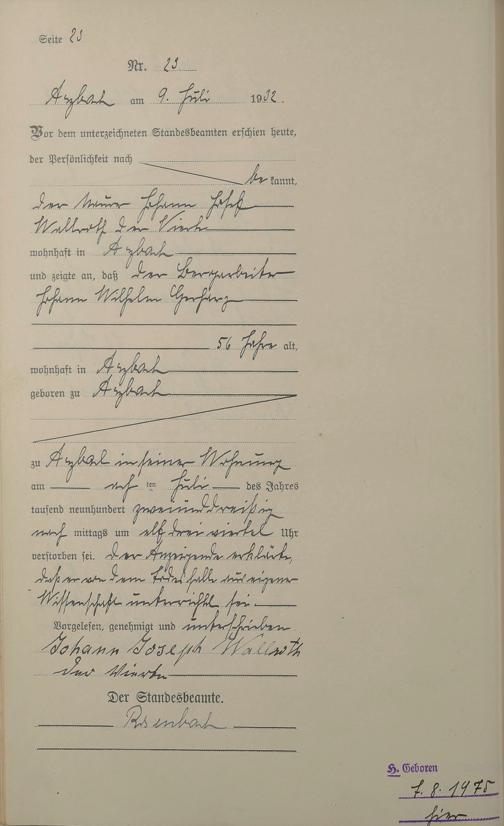 Seite 23
Nr. 23
Arzbach am 9. Juli 1932.
Vor dem unterzeichneten Standesbeamten erschien heute,
der Persönlichkeit nach
be kannt,
der Maurer Johann Josef
Wallroth der Vierte
wohnhaft in Arzbach
und zeigte an, daß der Bergarbeiter
Johann Wilhelm Gerharz
56 Jahre alt,
wohnhaft in Arzbach
geboren zu Arzbach
zu Arzbach in seiner Wohnung
am acht ten Juli des Jahres
tausend neunhundert zweiunddreißig
nach mittags um elf drei viertel Uhr
verstorben sei. Der Anzeigende erklärte,
daß er von dem Todesfalle aus eigener
Wissenschaft unterrichtet sei.
Vorgelesen, genehmigt und unterschrieben
Johann Joseph Wallroth
der Vierte
Der Standesbeamte.
H. Geboren
7. 8. 1975
hier